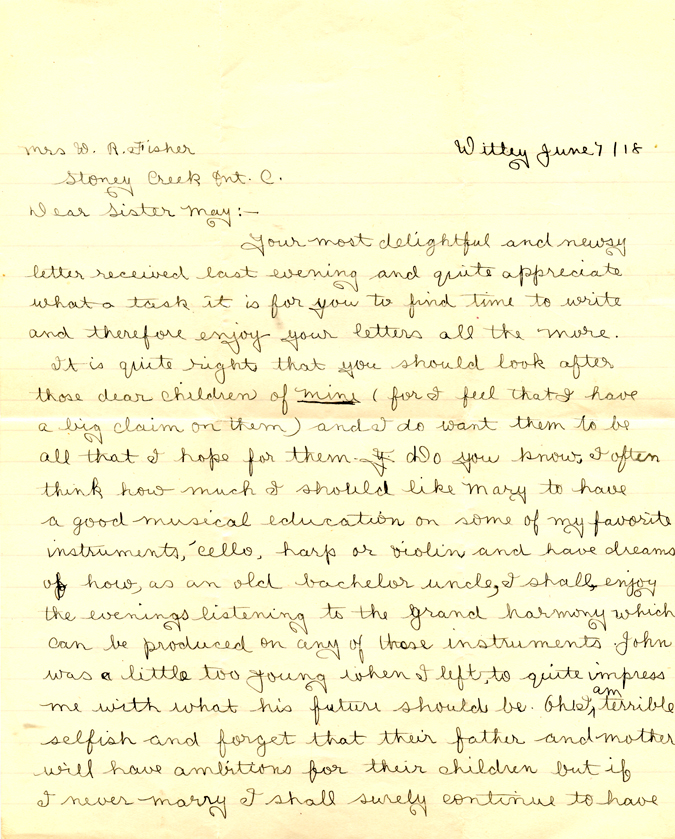 Mrs W. R. Fisher
Wittey June 7/18
Stoney Creek Ont. C.
Dear Sister May:-
Your most delightful and newsy
letter received last evening and quite appreciate
what a task it is for you to find time to write
and therefore enjoy your letters all the more.
It is quite right that you should look after
those dear children of mine (for I feel that I have
a big claim on them) and I do want them to be
all that I hope for them. Do you know, I often
think how much I should like Mary to have
a good musical education on some of my favorite
instruments, 'cello, harp or violin and have dreams
of how, as an old bachelor uncle, I shall, enjoy
the evenings listening to the grand harmony which
can be produced on any of those instruments. John
was a little too young when I left, to quite impress
me with what his future should be. Oh I am terrible
selfish and forget that their father and mother
will have ambitions for their children but if
I never marry I shall surely continue to have